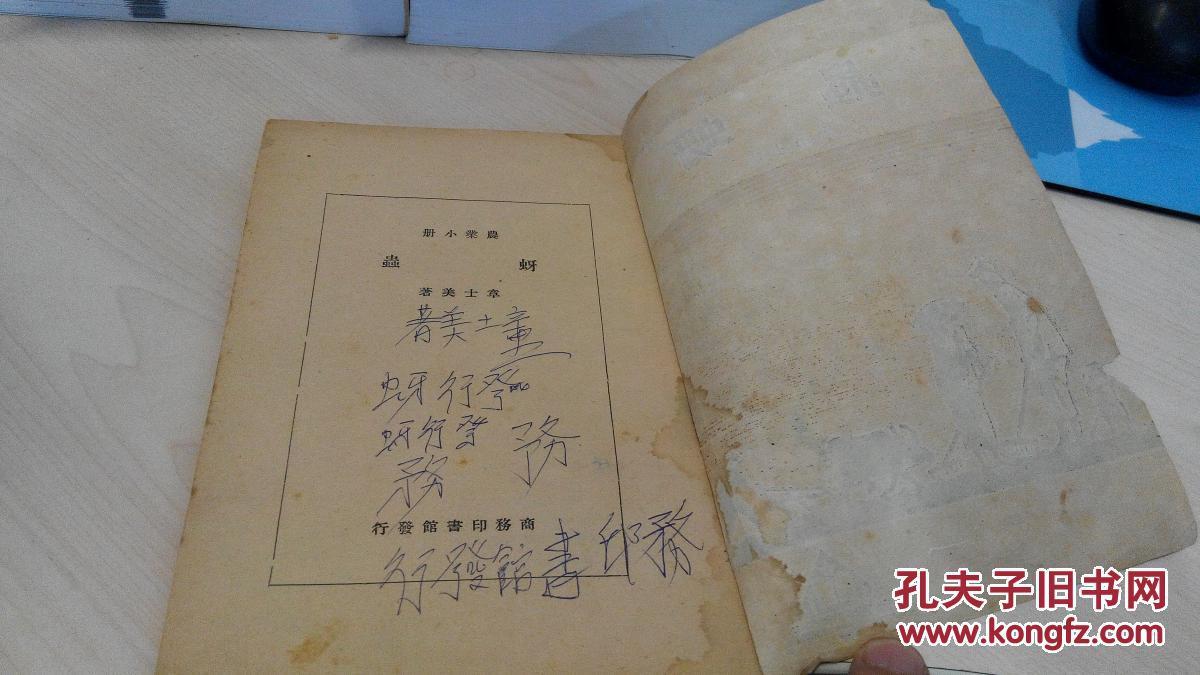 農業小册
蚜蟲
章士美著
章士美著
發行蚜
發行蚜
務
務
商務印書館發行
務印書館發行
孔夫子旧书网
www.kongfz.com